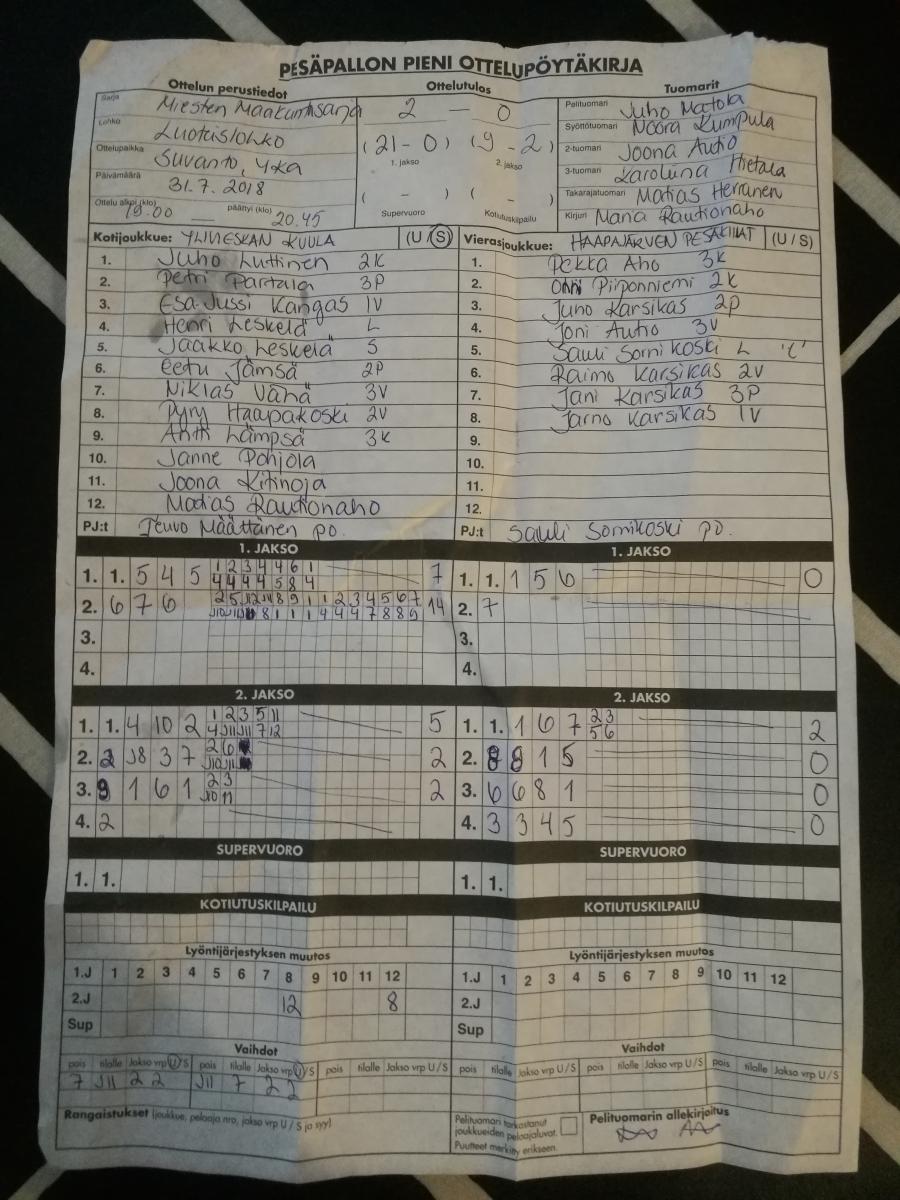 PESÄPALLON PIENI OTTELUPÖYTÄKIRJA
Ottelun perustiedot Ottelutulos Tuomarit
Sarja Miesten Maakuntasarja 2 — 0 Pelituomari Juho Matola
Lohko Luoteislohko Syöttötuomari Noora Kumpula
Ottelupaikka Suvanto, Yka (21-0) (9-2) 2-tuomari Joona Autio
1. jakso 2. jakso 3-tuomari Karoliina Hietala
Päivämäärä 31.7.2018 ( - ) ( - ) Takarajatuomari Matias Herranen
Ottelu alkoi (klo) 19.00 — päättyi (klo) 20.45 Supervuoro Kotiutuskilpailu Kirjuri Maria Rautionaho
Kotijoukkue: YLIVIESKAN KUULA (U / S) Vierasjoukkue: HAAPAJÄRVEN PESÄKIILAT (U / S)
1. Juho Luttinen 2K 1. Pekka Aho 3K
2. Petri Partala 3P 2. Onni Piipponiemi 2K
3. Esa-Jussi Kangas 1V 3. Juho Karsikas 2P
4. Henri Leskelä L 4. Joni Autio 3V
5. Jaakko Leskelä S 5. Sauli Sornikoski L
6. Eetu Jämsä 2P 6. Raimo Karsikas 2V
7. Niklas Vähä 3V 7. Jani Karsikas 3P
8. Pyry Haapakoski 2V 8. Jarno Karsikas 1V
9. Antti Lämpsä 3K 9.
10. Janne Pohjola 10.
11. Joona Kitinoja 11.
12. Matias Rautionaho 12.
PJ:t Teuvo Määttänen po. PJ:t Sauli Sornikoski po.
1. JAKSO 1. JAKSO
1. 1. 5 4 5 1 2 3 4 4 6 1 7 1. 1. 1 5 6 0
4 4 4 4 5 8 4
2. 6 7 6 2 5 J12 J11 8 9 1 1 2 3 4 5 6 7 14 2. 7
8 1 1 1 4 4 4 7 8 8 9
3. 3.
4. 4.
2. JAKSO 2. JAKSO
1. 1. 4 10 2 1 2 3 5 11 5 1. 1. 1 6 7 2 3 2
4 J11 J11 7 12 5 6
2. 2 J8 3 7 2 6 2 2. 8 8 1 5 0
J10 J11
3. 9 1 6 1 2 3 2 3. 6 6 8 1 0
J10 11
4. 2 4. 3 3 4 5 0
SUPERVUORO SUPERVUORO
1. 1. 1. 1.
KOTIUTUSKILPAILU KOTIUTUSKILPAILU
Lyöntijärjestyksen muutos Lyöntijärjestyksen muutos
1.J 1 2 3 4 5 6 7 8 9 10 11 12 1.J 1 2 3 4 5 6 7 8 9 10 11 12
2.J 12 8 2.J
Sup Sup
Vaihdot Vaihdot
pois tilalle Jakso vrp U/S pois tilalle Jakso vrp U/S pois tilalle Jakso vrp U/S pois tilalle Jakso vrp U/S pois tilalle Jakso vrp U/S pois tilalle Jakso vrp U/S
7 J11 2 2 J11 7 2 2
Rangaistukset (joukkue, pelaaja nro, jakso vrp U / S ja syy) Pelituomari tarkastanut Pelituomarin allekirjoitus
joukkueiden pelaajaluvat.
Puutteet merkitty erikseen.